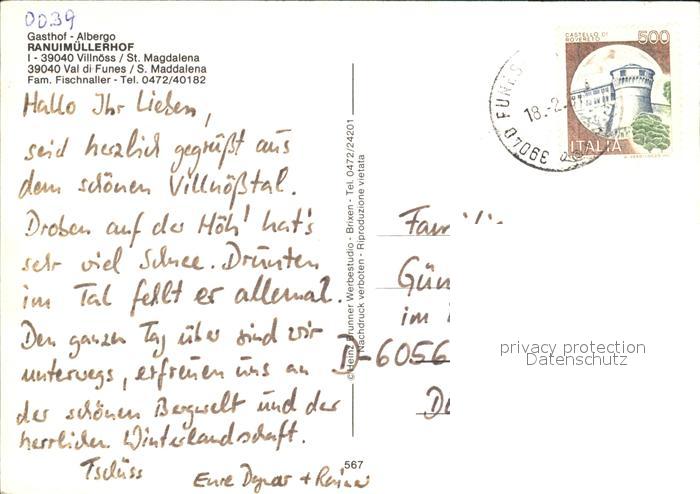 0039
Gasthof - Albergo
RANUIMÜLLERHOF
I - 39040 Villnöss / St. Magdalena
39040 Val di Funes / S. Maddalena
Fam. Fischnaller - Tel. 0472/40182
Hallo Ihr Lieben,
seid herzlich gegrüßt aus
dem schönen Villnößtal.
Droben auf der Höh' hat's
sehr viel Schnee. Drunten
im Tal fehlt er allemal.
Den ganzen Tag über sind wir
unterwegs, erfreuen uns an
der schönen Bergwelt und der
herrlichen Winterlandschaft.
Tschüss
Eure Dagmar + Rainer
567
© Heinz Brunner Werbestudio - Brixen - Tel. 0472/24201
Nachdruck verboten - Riproduzione vietata
CASTELLO DI
ROVERETO
500
ITALIA
39040 FUNES
18.-2.
Fam
Gün
im
D-6056
privacy protection
Datenschutz